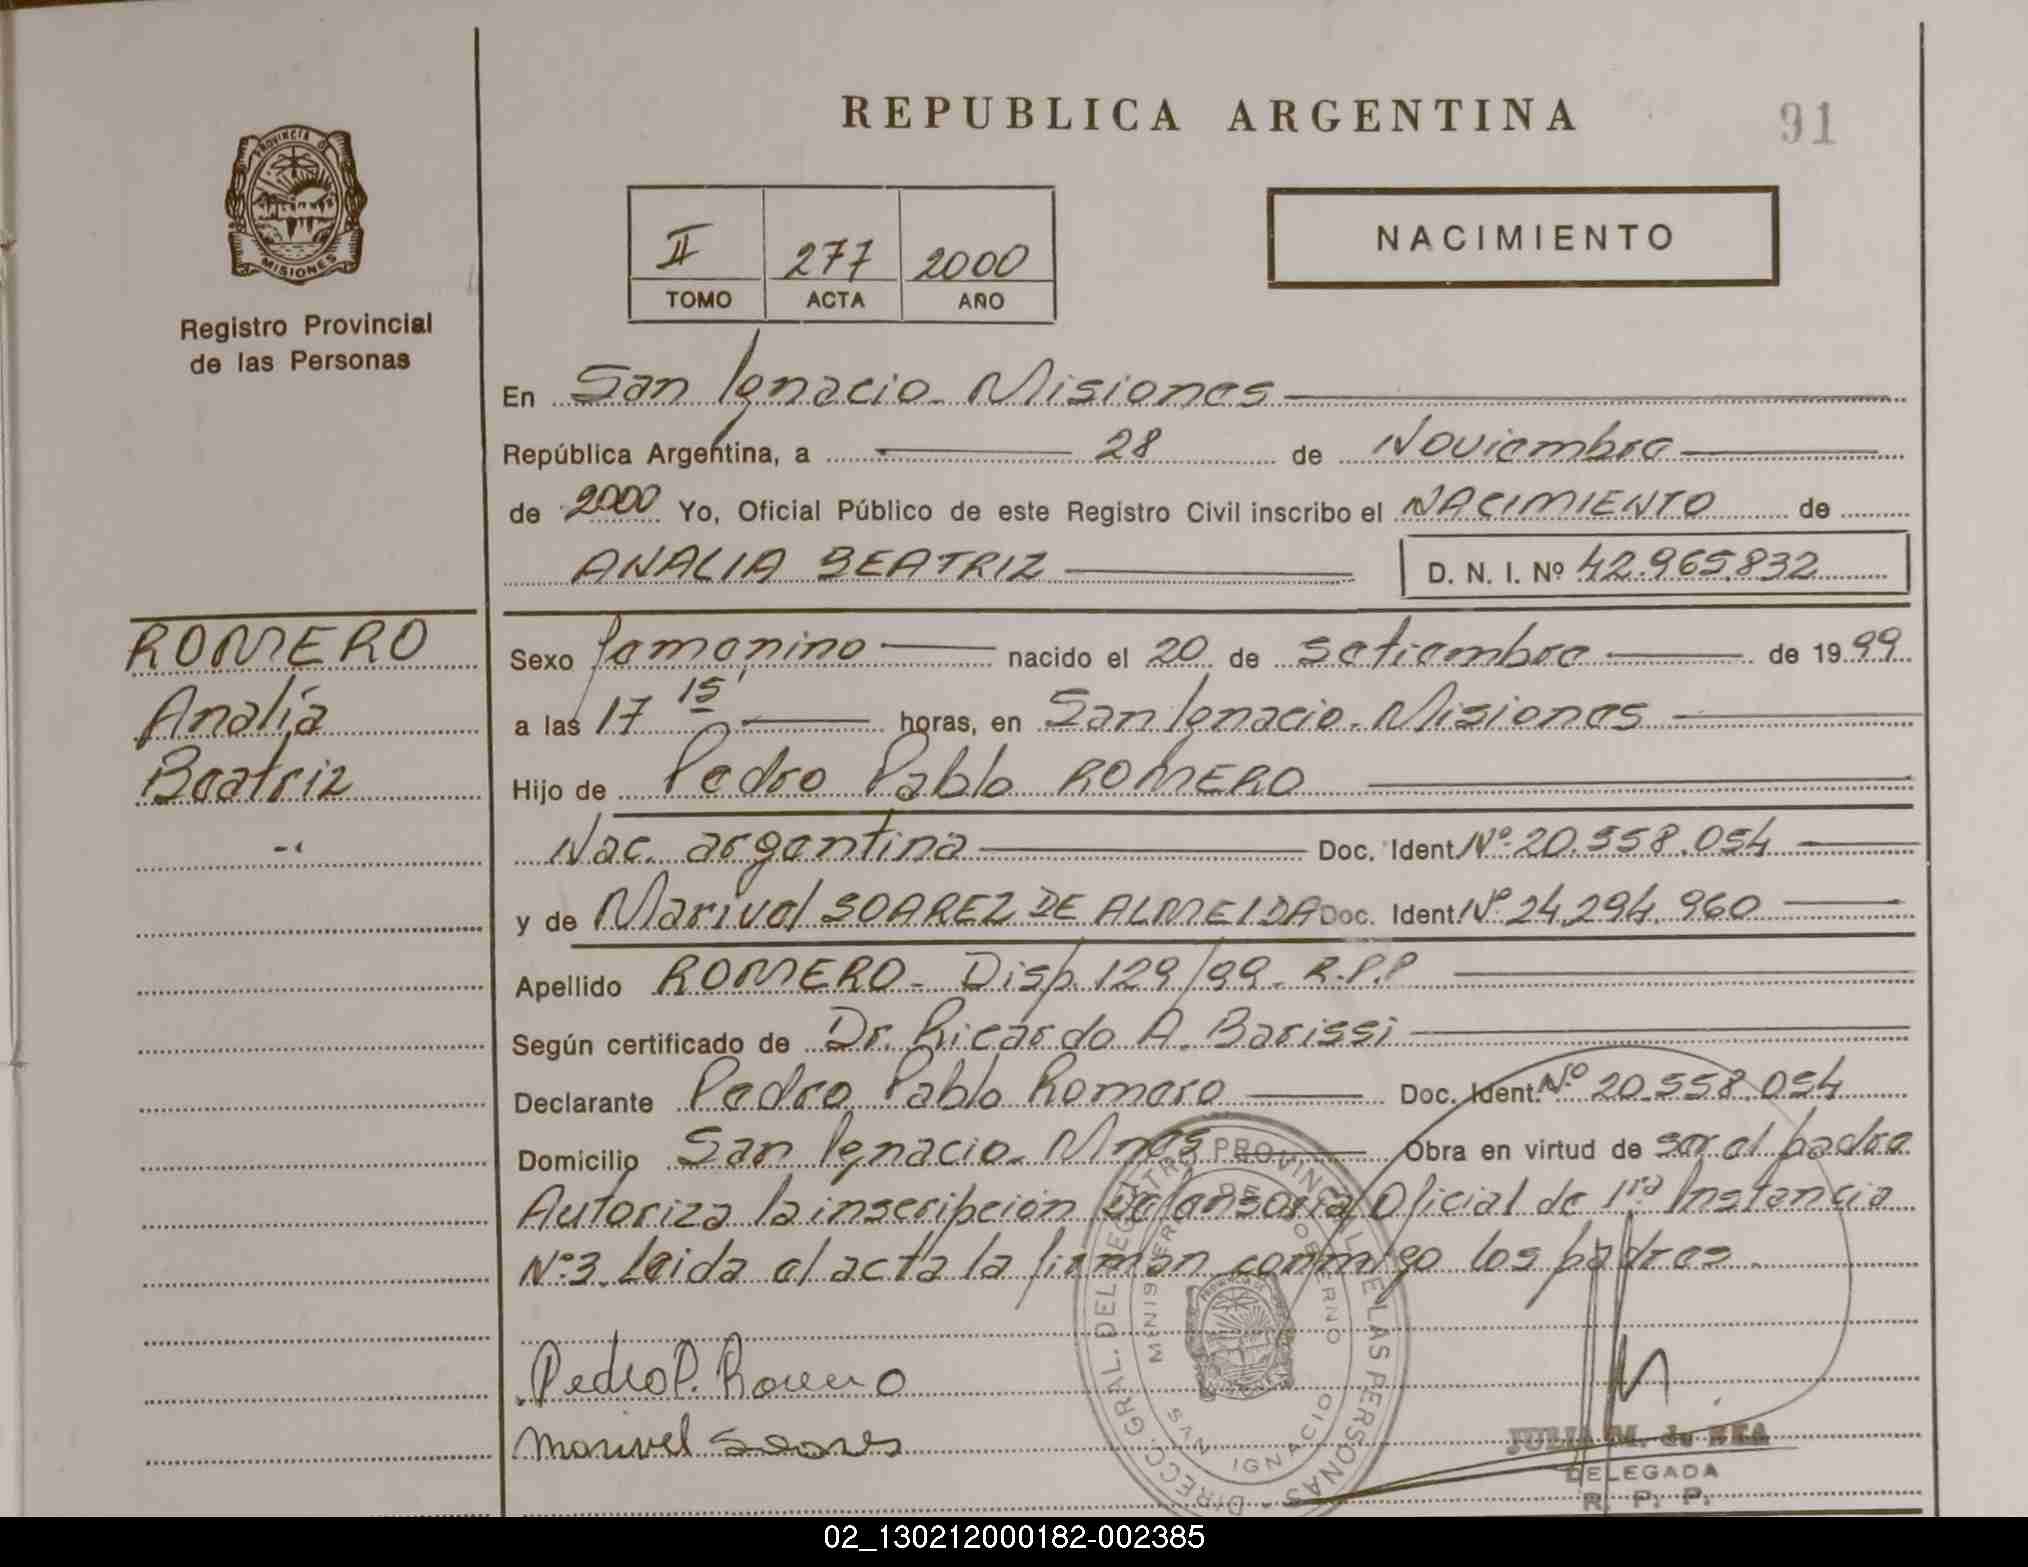 REPUBLICA ARGENTINA
91
PROVINCIA DE
MISIONES
Registro Provincial
de las Personas
II 277 2000
TOMO ACTA AÑO
NACIMIENTO
En San Ignacio - Misiones
República Argentina, a 28 de Noviembre
de 2000 Yo, Oficial Público de este Registro Civil inscribo el NACIMIENTO de
ANALIA BEATRIZ D. N. I. Nº 42.965.832
ROMERO
Analía
Beatriz
Sexo femenino nacido el 20 de setiembre de 1999
a las 17 15' horas, en San Ignacio - Misiones
Hijo de Pedro Pablo ROMERO
Nac. argentina Doc. Ident Nº 20.558.054
y de Marivel SOAREZ DE ALMEIDA Doc. Ident Nº 24.294.960
Apellido ROMERO - Disp. 129/99 - R.P.P
Según certificado de Dr. Ricardo A. Barissi
Declarante Pedro Pablo Romero Doc. Ident. Nº 20.558.054
Domicilio San Ignacio - Mnes Obra en virtud de ser el padre
Autoriza la inscripción Defensoría Oficial de 1ra Instancia
Nº3. Leida el acta la firman conmigo los padres.
Pedro P. Romero
Marivel Soares
DIRECC. GRAL. DEL REGISTRO PROVINCIAL DE LAS PERSONAS
MINISTERIO DE GOBIERNO
SAN IGNACIO
JULIA M. de REA
DELEGADA
R. P. P.
02_130212000182-002385